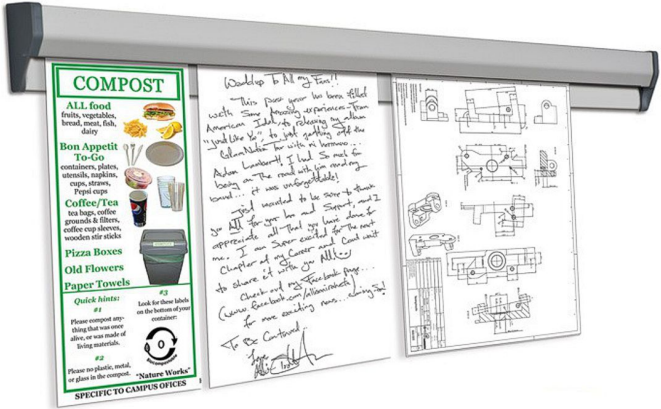 COMPOST
ALL food
fruits, vegetables,
bread, meat, fish,
dairy
Bon Appetit
To-Go
containers, plates,
utensils, napkins,
cups, straws,
Pepsi cups
Coffee/Tea
tea bags, coffee
grounds & filters,
coffee cup sleeves,
wooden stir sticks
Pizza Boxes
Old Flowers
Paper Towels
Quick hints:
#1
Please compost any-
thing that was once
alive, or was made of
living materials.
#2
Please no plastic, metal,
or glass in the compost.
#3
Look for these labels
on the bottom of your
container:
0
"Nature Works"
SPECIFIC TO CAMPUS OFICES
Waddup To All my Fans!!
This past year has been filled
with Some Amazing experiences - from
American Idol, to releasing my album
"Just Like You" to just getting off the
GlamNation Tour with mi hermano...
Adam Lambert! I had So much fun
being on the road with him and my
band... it was unforgettable!
Just wanted to be sure to thank
you All for your love and Support, and I
appreciate all that you have done for
me. I am Super excited for the next
Chapter of my Career and Can't wait
to share it with you All!
Check out my Facebook page...
(www.facebook.com/allisoniraheta)
for more exciting news... coming So!
To Be Continued..
Love,